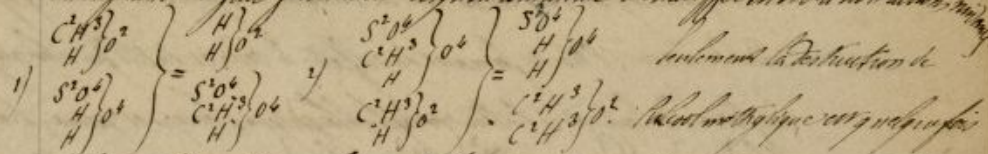 1) C²H³ H } O² S²O⁴ H H } O⁴ } = H H } O² S²O⁴ C²H³ H } O⁴
2) S²O⁴ C²H³ H } O⁴ C²H³ H } O² } = S²O⁴ H H } O⁴ C²H³ C²H³ } O²
seulement la destruction de
l'alcool méthylique est quelquefois